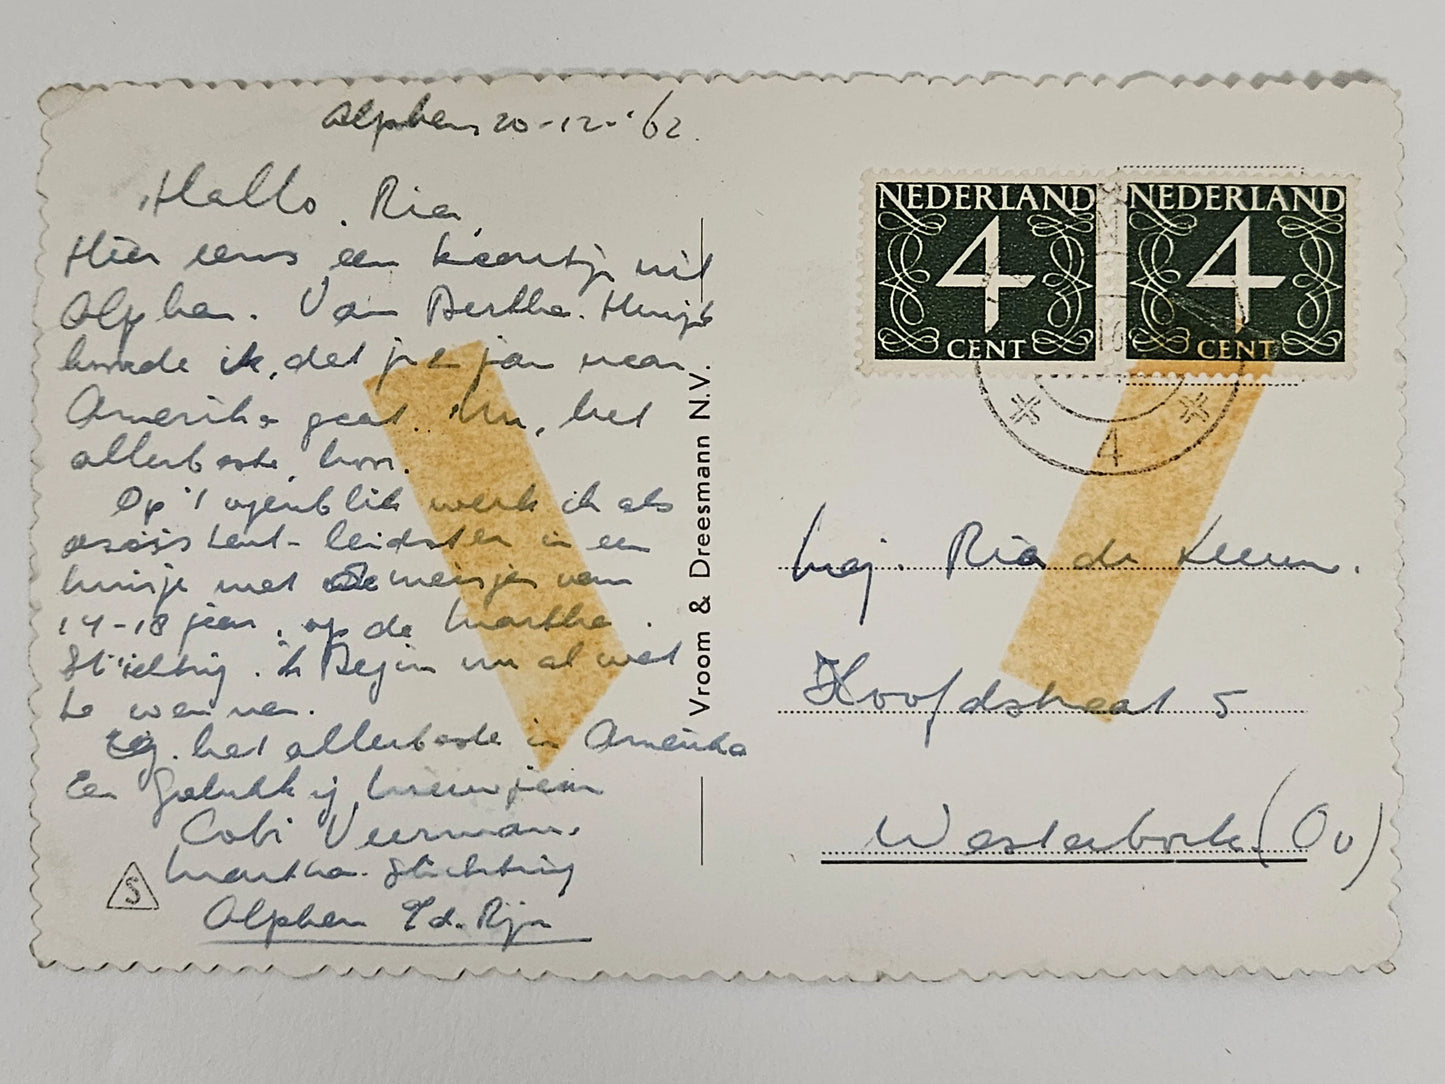 Alphen 20-12-'62.
Hallo Ria
Hier eens een kaartje uit
Alphen. Van Bertha
hoorde ik, dat je jan naar
Amerika gaat. Nu, het
allerbeste, hoor.
Op 't ogenblik werk ik als
assistent-leidster in een
huisje met meisjes van
14-18 jaar, op de Martha
Stichting. ik Begin nu al wat
te wennen.
Zeg. het allerbeste in Amerika
Een Gelukkig nieuwjaar
Cobi Veerman.
Martha-Stichting
Alphen a/d. Rijn
S
Vroom & Dreesmann N.V.
NEDERLAND
4
CENT
NEDERLAND
4
CENT
4
Mej. Ria de
Hoofdstraat 5
Westerbork (Ov)